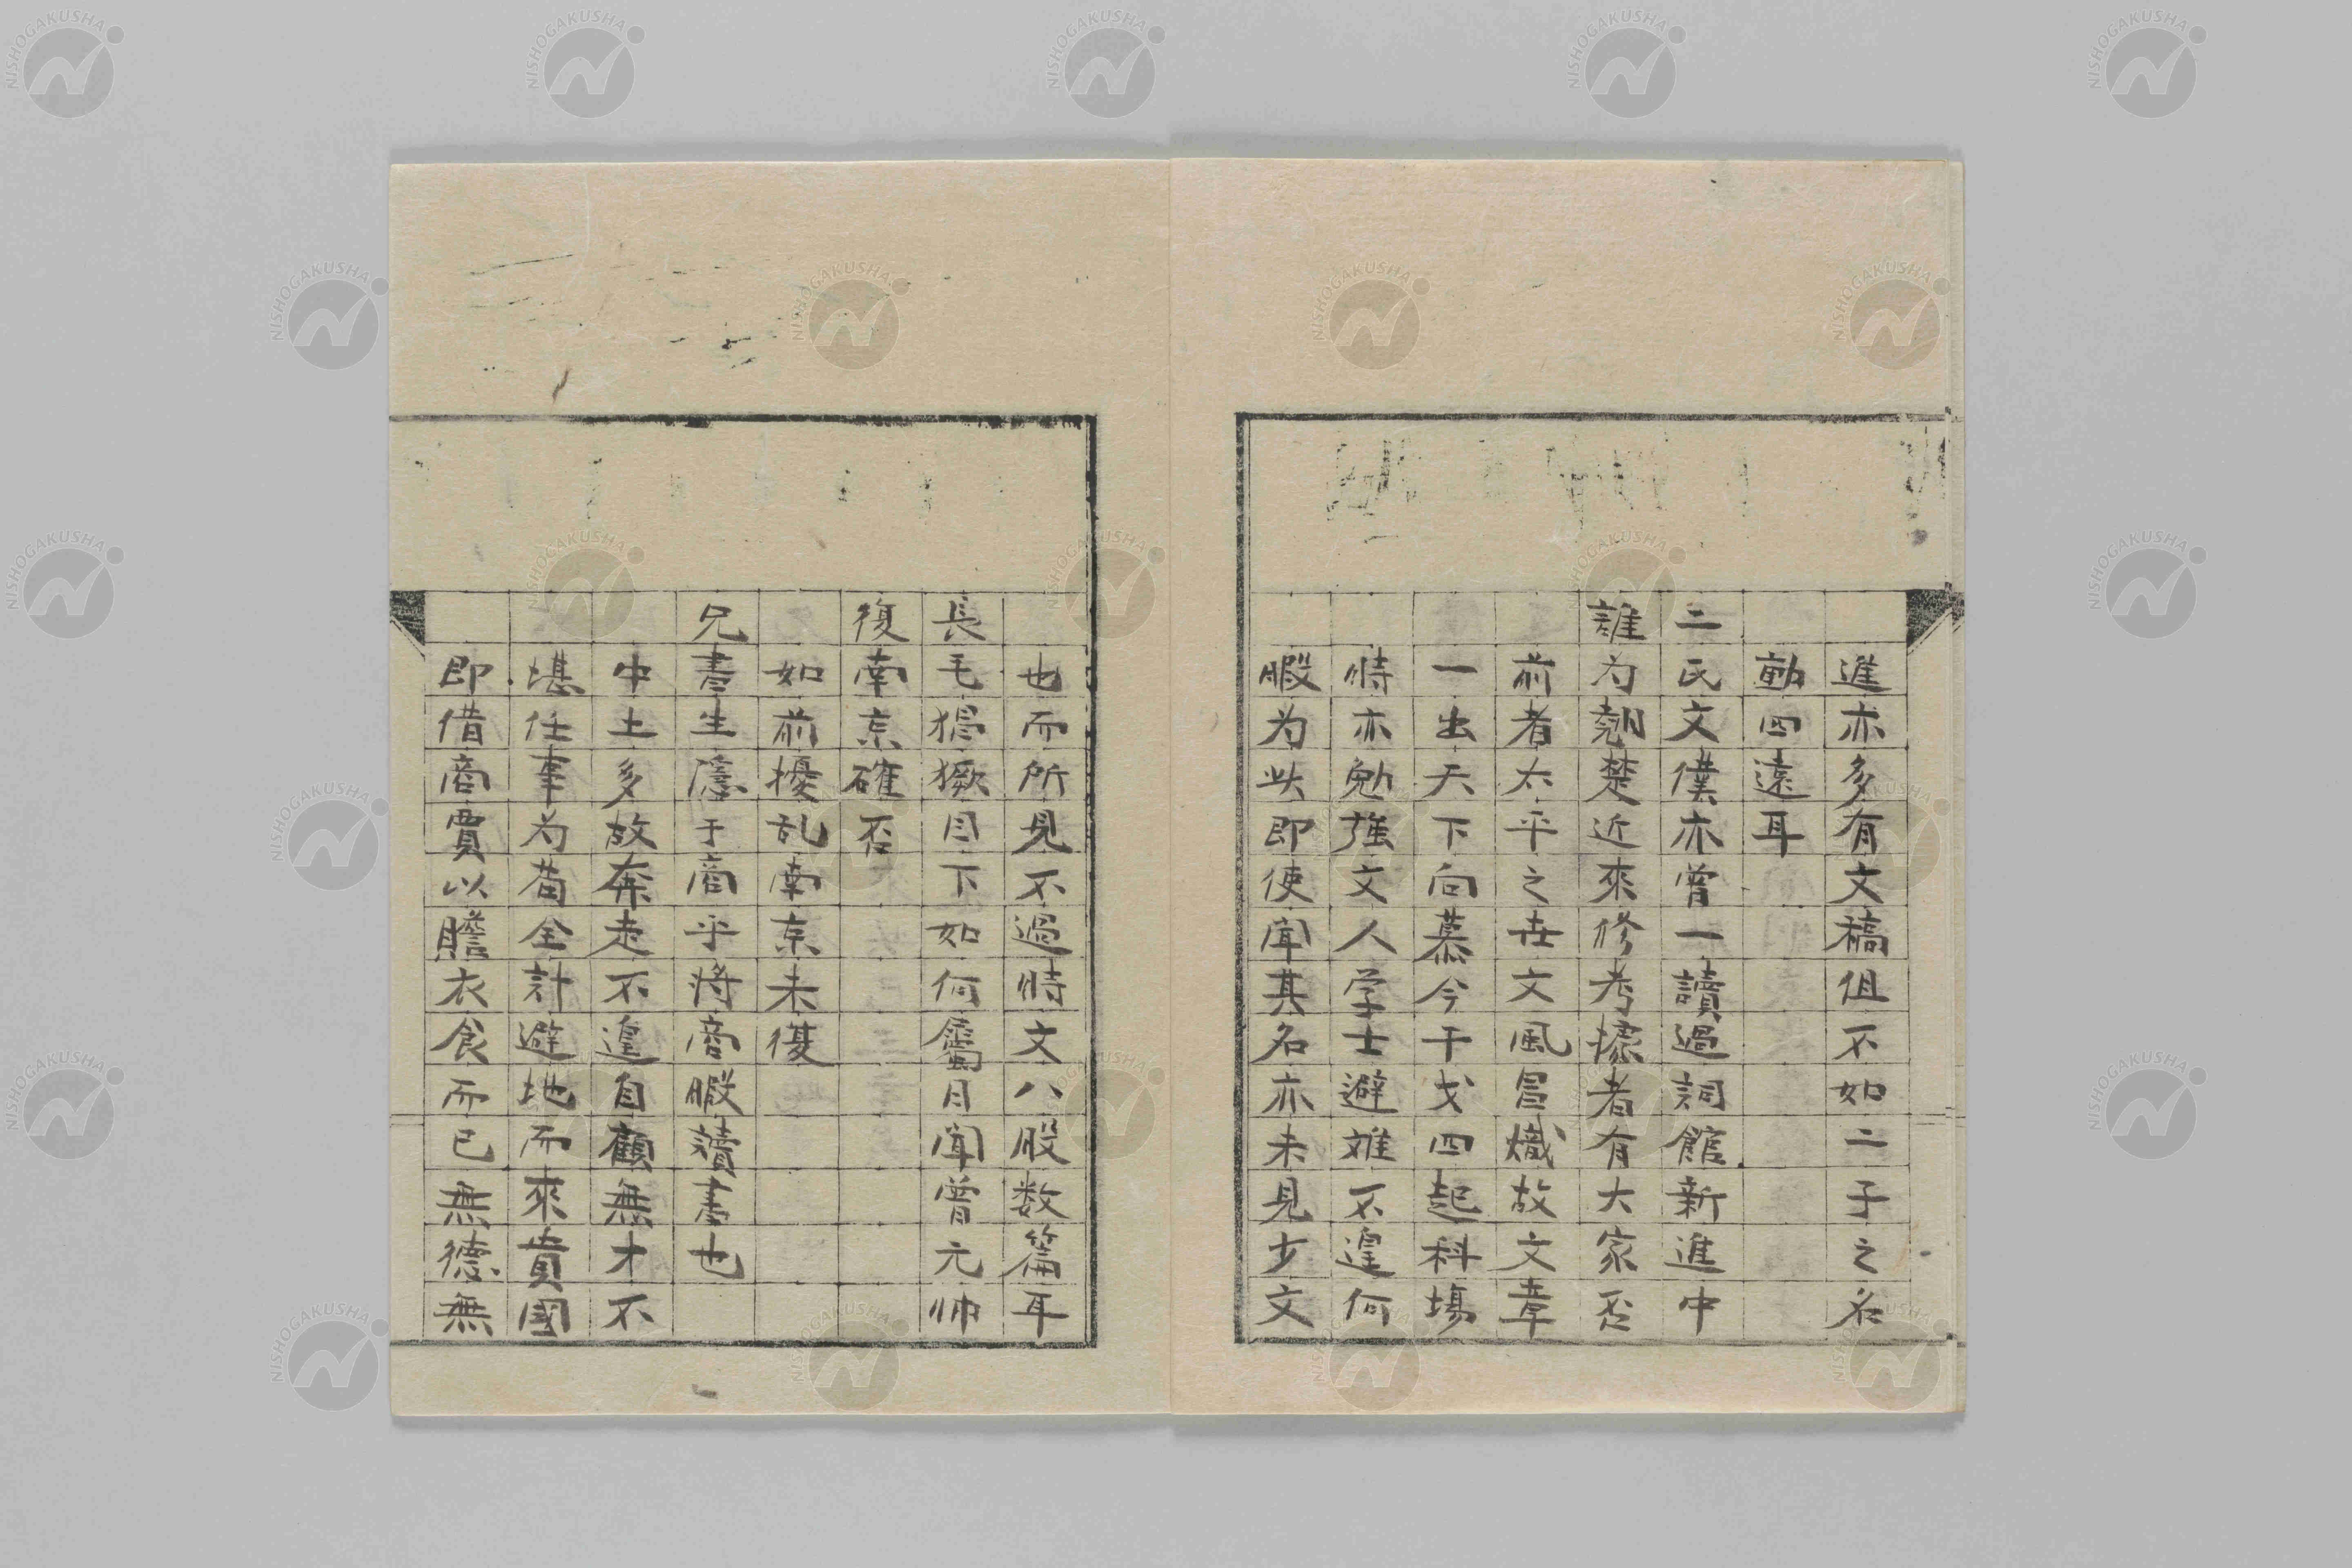 進亦多有文稿但不如二子之名
動四遠耳
二氏文僕亦曾一讀過詞館新進中
誰为翹楚近來修考據者有大家否
前者太平之世文風冒熾故文章
一出天下向慕今干戈四起科場
時亦勉強文人学士避难不遑何
暇为此即使闻其名亦未見古文
也而所見不過時文八股数篇耳
長毛猖獗目下如何屬目闻曾元帅
復南京確否
如前擾乱南京未復
兄書生隱于商乎将商暇讀書也
中土多故奔走不遑自顧無才不
堪任事为苟全計避地而來貴國
即借商賈以贍衣食而已無德無
NISHOGAKUSHA